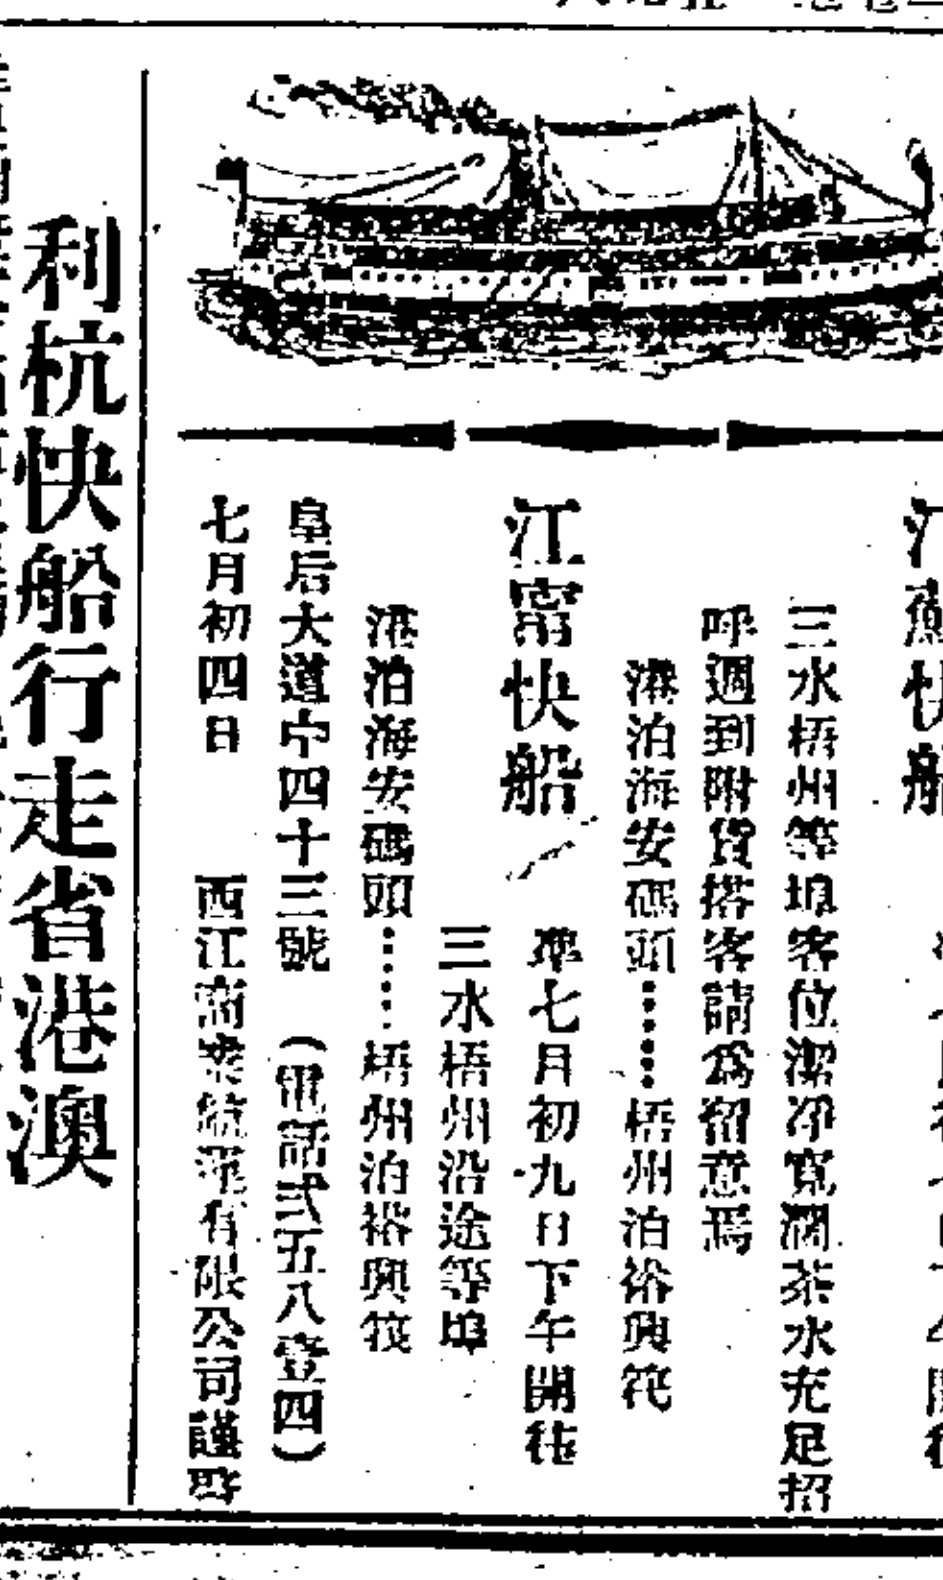 江蘇快船
三水梧州等埠客位潔净寬濶茶水充足招
呼週到附貨搭客請爲留意焉
港泊海安碼頭⋯⋯梧州泊裕興筏
江甯快船
準七月初九日下午開往
三水梧州沿途等埠
港泊海安碼頭⋯⋯梧州泊裕興筏
皇后大道中四十三號 (電話弍五八壹四)
七月初四日 西江商業航運有限公司謹啓
利杭快船行走省港澳